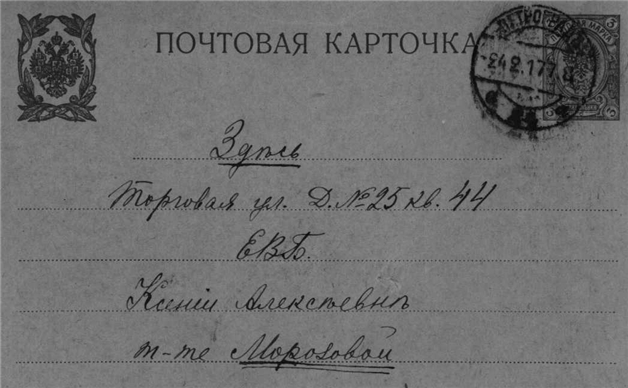 ПОЧТОВАЯ КАРТОЧКА
ПЕТРОГРАДЪ
24 2 17
3
Здѣсь
Торговая ул. Д. № 25 кв. 44
ЕВБ.
Ксеніи Алексѣевнѣ
m-me Морозовой